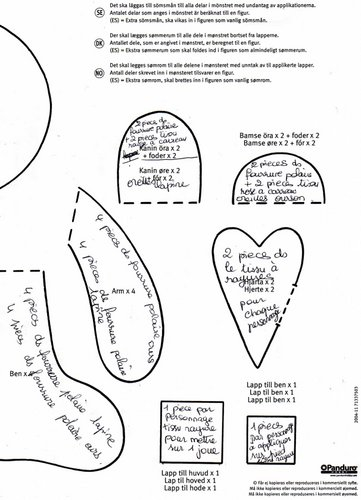 Det ska läggas till sömsmån till alla delar i mönstret med undantag av applikationerna.
SE
Antalet delar som anges i mönstret är beräknat till en figur.
(ES) = Extra sömsmån, ska vikas in i figuren som vanlig sömsmån.
Der skal lægges sømmerum til alle dele i mønstret bortset fra lapperne.
DK
Antallet dele, som er angivet i mønstret, er beregnet til en figur.
(ES) = Ekstra sømmerum som skal foldes ind i figuren som almindeligt sømmerum.
Det skal legges sømrom til alle delene i mønsteret med unntak av til applikerte lapper.
NO
Antall deler skrevet inn i mønsteret tilsvarer en figur.
(ES) = Ekstra sømrom, skal brettes inn i figuren som vanlig sømrom.
2 pieces de
fourrure polaire
+ 2 pieces tissu
rose à carreau
Kanin öra x 2
+ foder x 2
Kanin øre x 2
fór x 2
oreilles lapine
Bamse öra x 2 + foder x 2
Bamse øre x 2 + fór x 2
2 pieces de
fourrure polaire
+ 2 pieces tissu
rose à carreau
oreilles ourson
4 pieces de fourrure polaire ours
4 pieces de fourrure polaire lapine
Arm x 4
4 pieces de fourrure polaire lapine
4 pieces de fourrure polaire ours
Ben x 4
2 pieces de
le tissu à
rayures
Hjärta x 2
Hjerte x 2
pour
chaque
personnage
Lapp till ben x 1
Lap til ben x 1
Lapp til ben x 1
1 piece par
personnage
tissu rayure
pour mettre
sur 1 joue
Lapp till huvud x 1
Lap til hoved x 1
Lapp til hode x 1
1 pieces
par personnage
à appliquer
sur
Panduro
Får ej kopieras eller reproduceras i kommersiellt syfte.
Må ikke kopieres eller reproduceres i kommercielt øjemed.
Må ikke kopieres eller reproduseres i kommersielt øyemed.